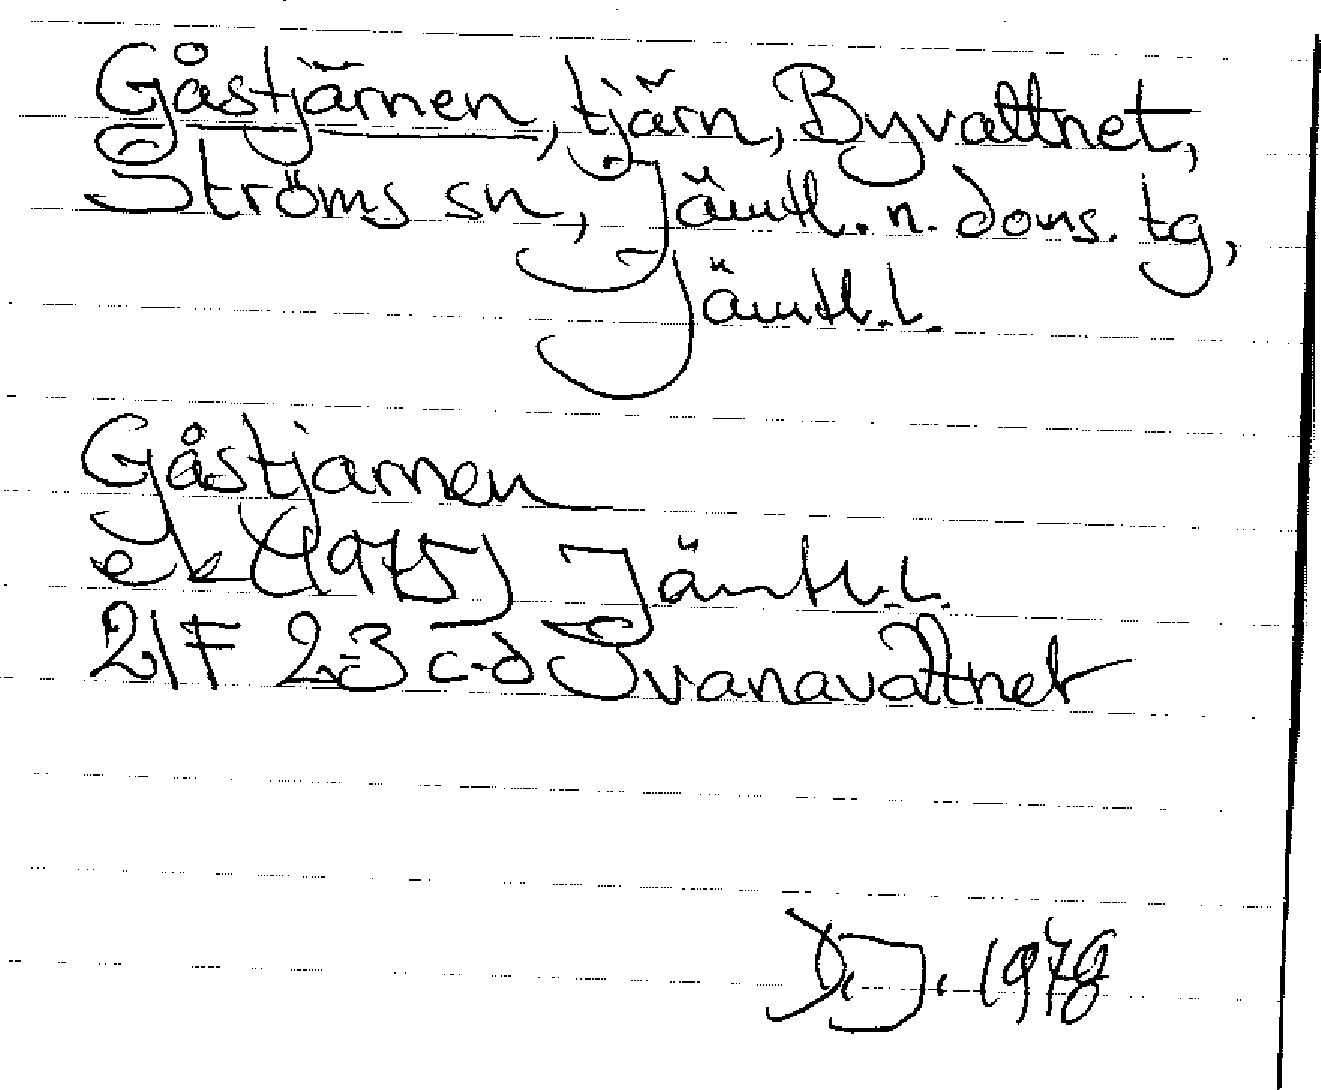 Gåstjärnen, tjärn, Byvattnet,
Ströms sn, Jämtl. n. doms. tg,
Jämtl. l.
Gåstjarnen
ek (1975) Jämtl. l.
21F 2-3 c-d Svanavattnet
1978